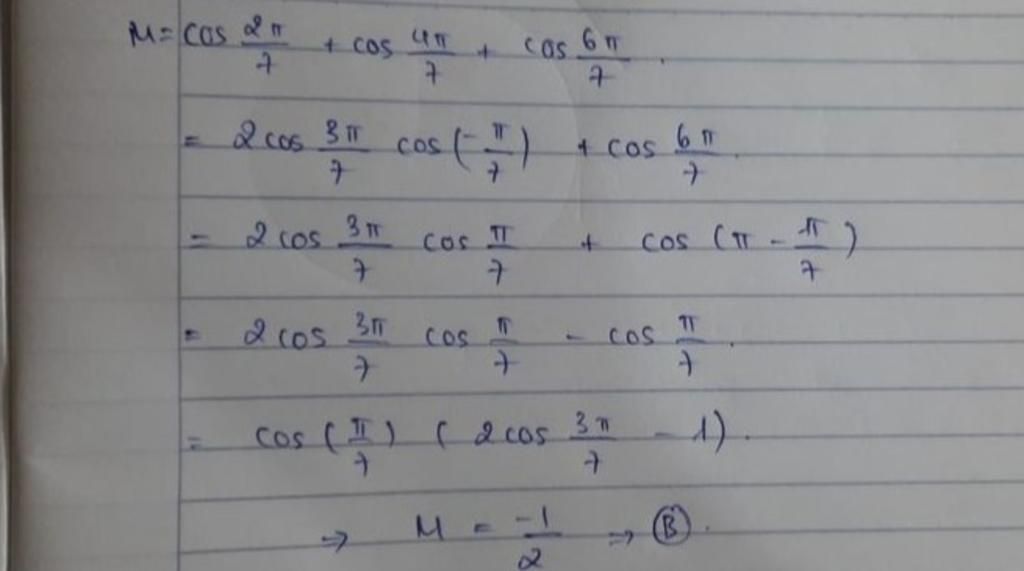 M = cos 2π/7 + cos 4π/7 + cos 6π/7 .
= 2 cos 3π/7 cos (-π/7) + cos 6π/7 .
= 2 cos 3π/7 cos π/7 + cos (π - π/7)
= 2 cos 3π/7 cos π/7 - cos π/7 .
= cos (π/7) ( 2 cos 3π/7 - 1) .
⇒ M = -1/2 ⇒ Ⓑ .